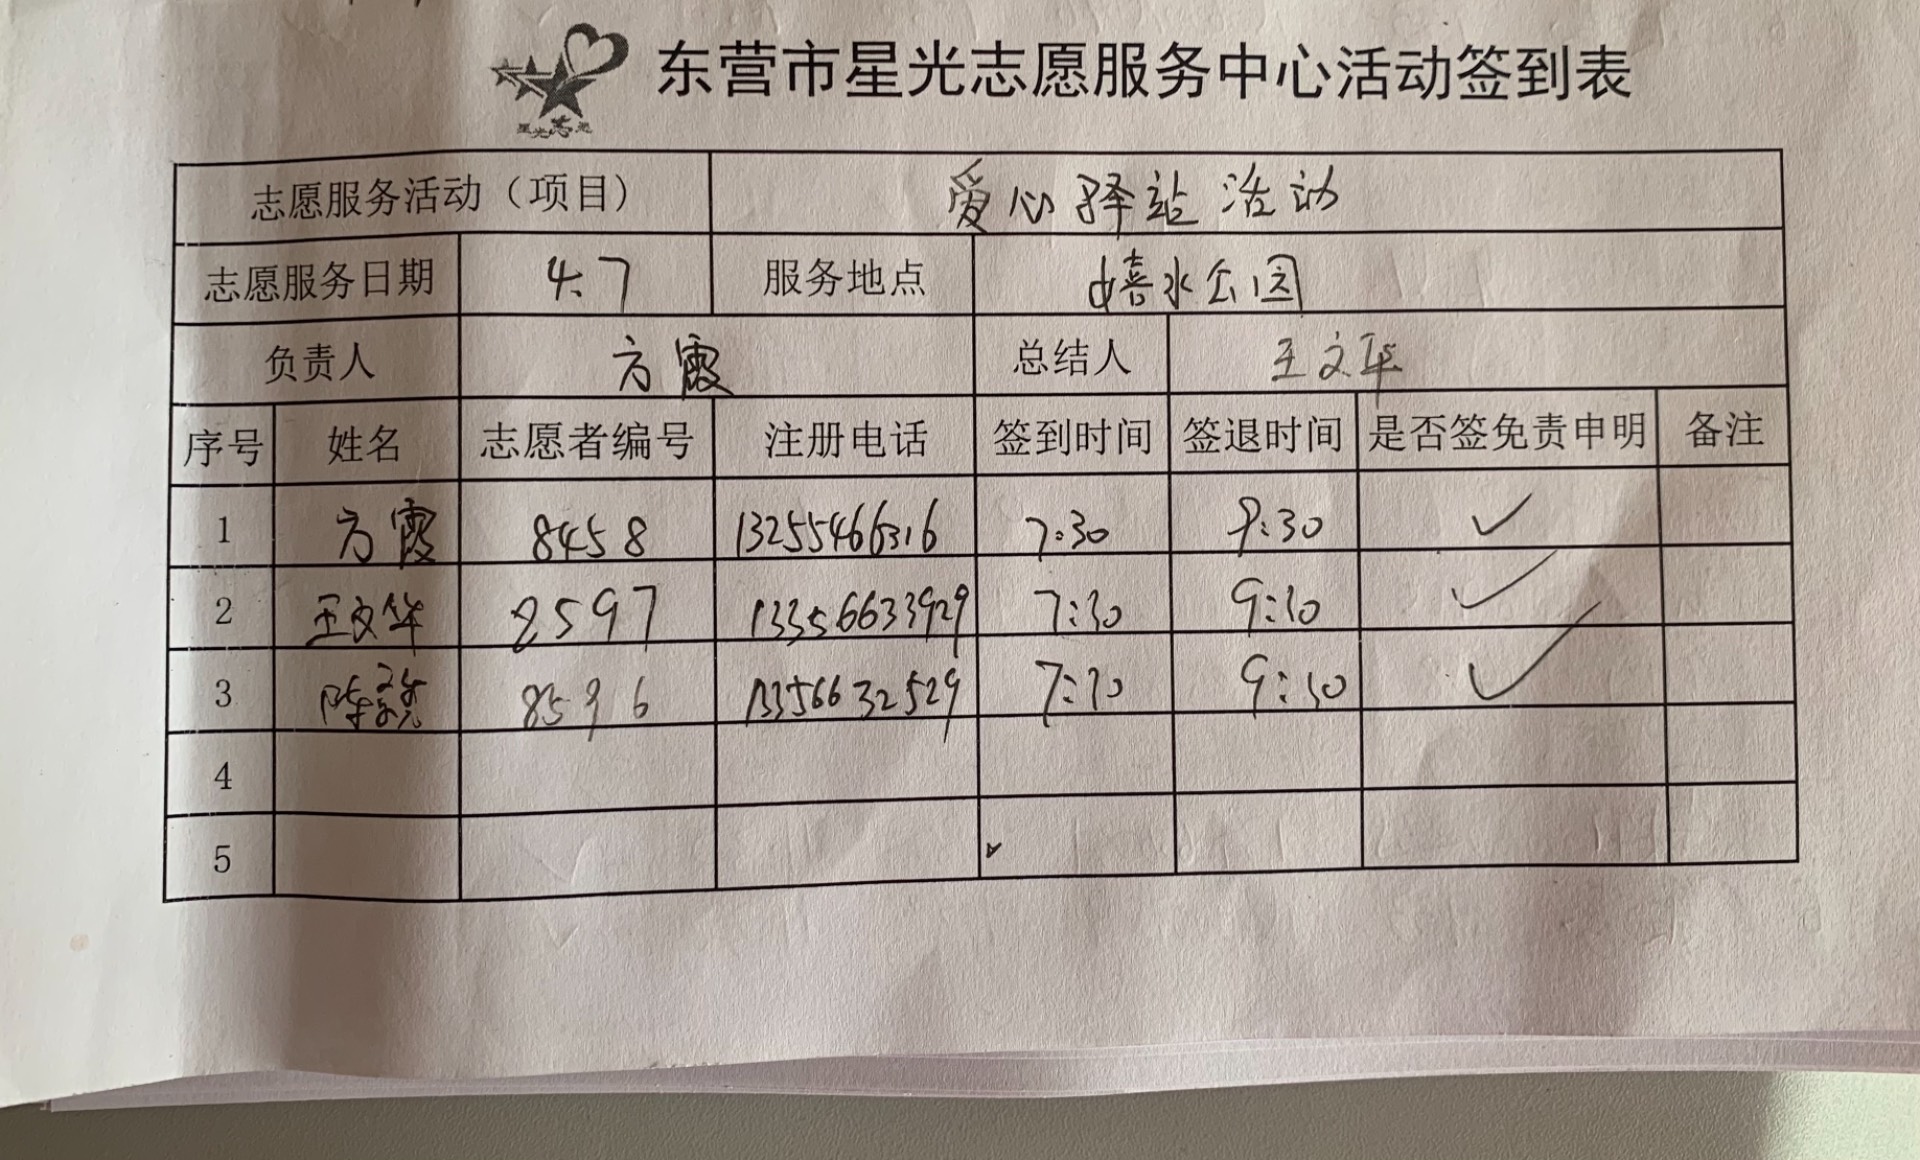 东营市星光志愿服务中心活动签到表
星光志愿
志愿服务活动（项目） 爱心驿站活动
志愿服务日期 4.7 服务地点 嘻水公园
负责人 方霞 总结人 王文华
序号 姓名 志愿者编号 注册电话 签到时间 签退时间 是否签免责申明 备注
1 方霞 8458 13255466316 7:30 9:30 ✓
2 王文华 8597 13356633929 7:30 9:30 ✓
3 陈 8596 13356632529 7:30 9:30 ✓
4
5